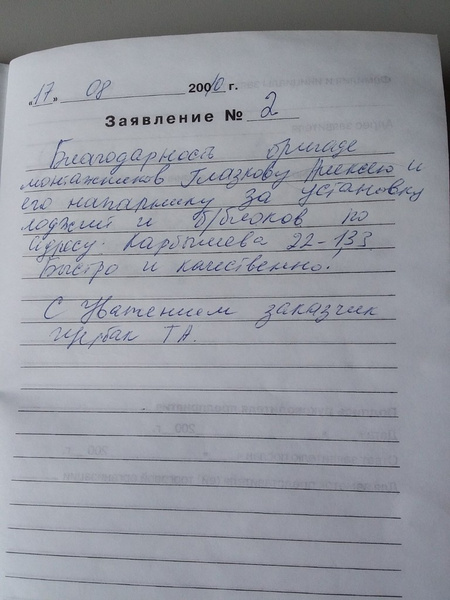 "17" 08 20010 г.
Заявление № 2
Благодарность бригаде
монтажников Глазкову Алексею и
его напарнику за установку
лоджий и б/блоков по
адресу: Карбышева 22-133.
Быстро и качественно.
С Уважением заказчик
Щербак ТА.